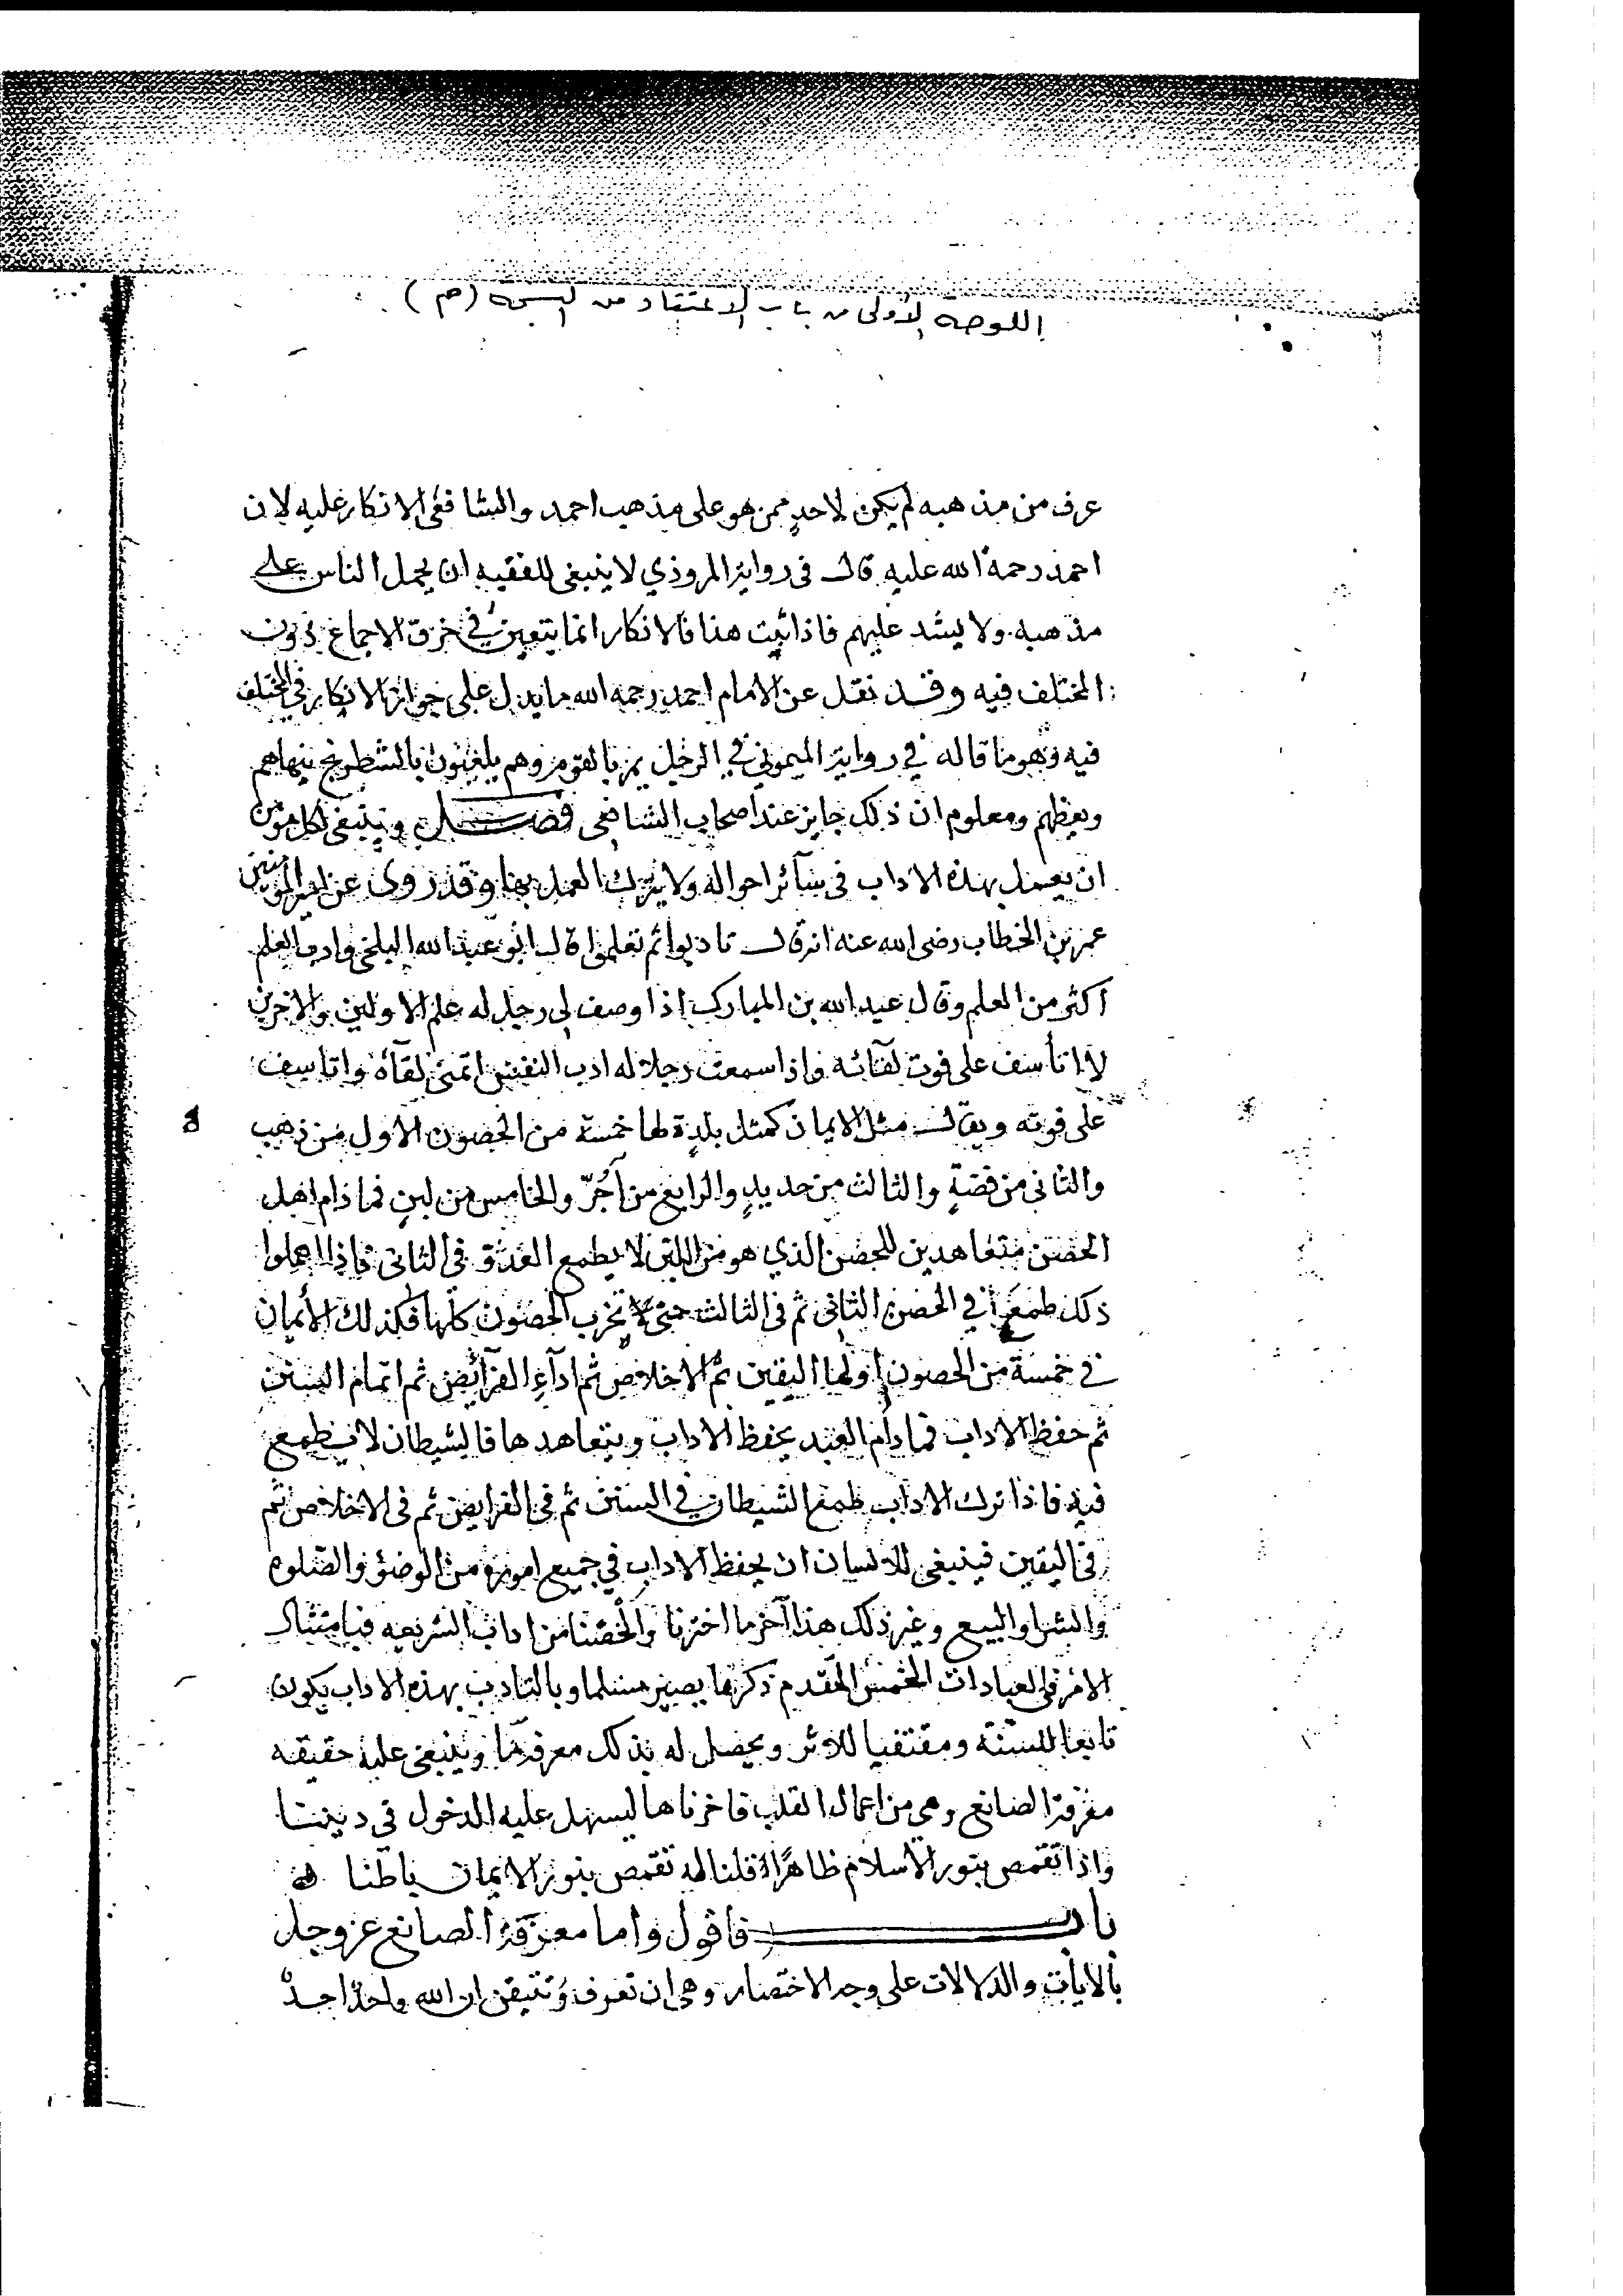 اللوحة الأولى من باب الاعتقاد من النسخة (هم)
عرف من مذهبه لم يكن لاحدٍ ممن هو على مذهب احمد والشافعى الانكار عليه لان
احمد رحمة الله عليه قال فى رواية المروذي لا ينبغى للفقيه ان يحمل الناس على
مذهبه ولا يشدد عليهم فاذا ثبت هذا فالانكار انما يتعين في خرق الاجماع دون
المختلف فيه وقد نقل عن الامام احمد رحمه الله ما يدل على جواز الانكار في المختلف
فيه وهو ما قاله في رواية الميموني في الرجل يمر بالقوم وهم يلعبون بالشطرنج ينهاهم
ويعظهم ومعلوم ان ذلك جايز عند اصحاب الشافعى فصل وينبغى لكل مؤمن
ان يعمل بهذه الاداب فى سآئر احواله ولا يترك العمل بها وقد روى عن امير المؤمنين
عمر بن الخطاب رضى الله عنه انه قال تادبوا ثم تعلموا قال ابو عبد الله البلخى وادب العلم
اكثر من العلم وقال عبد الله بن المبارك اذا وصف لى رجل له علم الاولين والاخرين
لا اتأسف على فوت لقآئه واذا سمعت رجلا له ادب النفس اتمنى لقآءه واتاسف
على فوته ويقال مثل الايمان كمثل بلدة لها خمسة من الحصون الاول من ذهب
والثانى من فضةٍ والثالث من حديدٍ والرابع من آجُرّ والخامس من لبنٍ فما دام اهل
الحصن متعاهدين للحصن الذي هو من اللبن لا يطمع العدو فى الثانى فاذا اهملوا
ذلك طمعوا في الحصن الثانى ثم فى الثالث حتى تخرب الحصون كلها فكذلك الأيمان
فى خمسة من الحصون اولها اليقين ثم الاخلاص ثم ادآءِ الفرآئض ثم اتمام السنن
ثم حفظ الاداب فما دام العبد يحفظ الاداب ويتعاهدها فالشيطان لا يطمع
فيه فاذا ترك الاداب طمع الشيطان في السنن ثم فى الفرايض ثم فى الاخلاص ثم
فى اليقين فينبغى للانسان ان يحفظ الاداب في جميع اموره من الوضوء والصلوه
والشرا والبيع وغير ذلك هذا آخر ما اخترنا والخصنا من اداب الشريعه فبامتثال
الامر فى العبادات الخمس المقدم ذكرها يصير مسلما وبالتادب بهذه الاداب يكون
تابعا للسنة ومقتفيا للاثر ويحصل له بذلك معرفة ما وينبغى عليه حقيقه
معرفة الصانع وهى من اعمال القلب فاخرناها ليسهل عليه الدخول فى ديننا
واذا تقمص بنور الاسلام ظاهرًا قلنا له تقمص بنور الايمان باطنا
باب فاقول واما معرفة الصانع عز وجل
بالايات والدلالات على وجه الاختصار وهى ان تعرف وتتيقن ان الله واحدٌ احدٌ